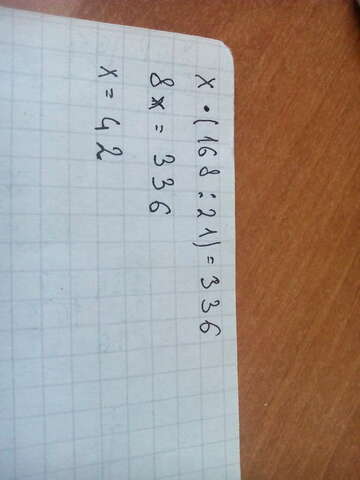 x • (168 : 21) = 336
8x = 336
x = 42